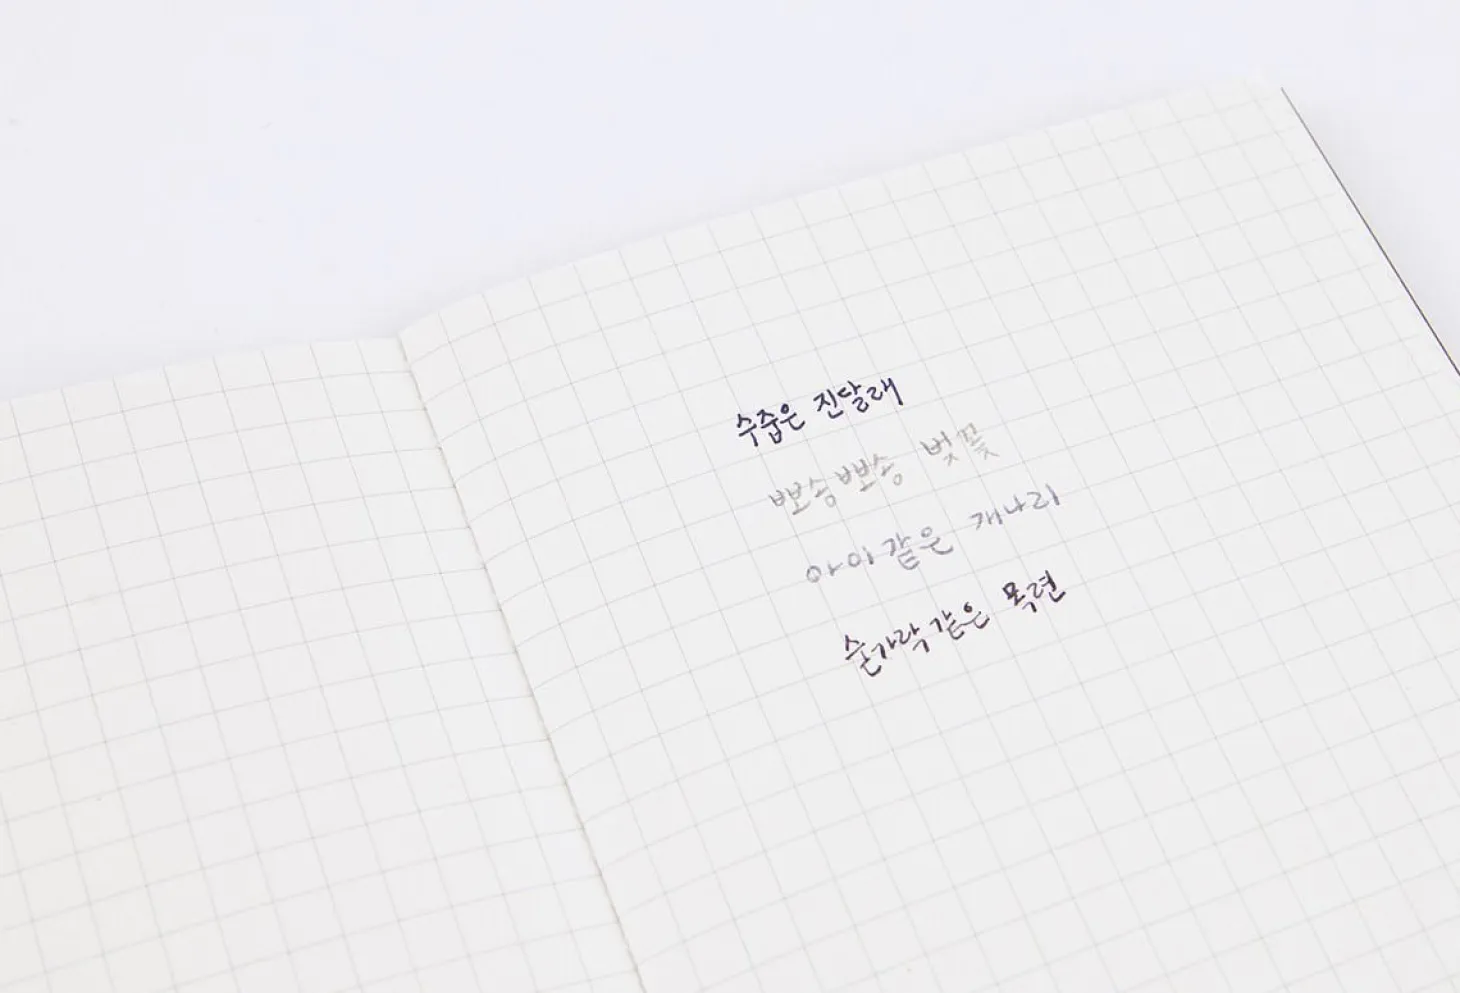 수줍은 진달래
뽀송뽀송 벚꽃
아이같은 개나리
숟가락같은 목련